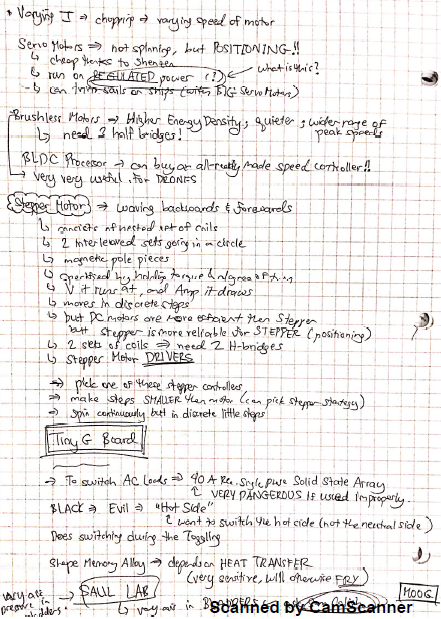 • Varying I → chopping → varying speed of motor
Servo Motors ⇒ not spinning, but POSITIONING!!
↳ cheap thanks to Shenzen
↳ run on REGULATED power (?) what is this?
- can trim sails on ships (with BIG Servo Motors)
Brushless Motors ⇒ Higher Energy Density, quieter, wider range of
peak speeds
↳ need 3 half bridges!
BLDC Processor → can buy an all-ready made speed controller!!
↳ very very useful for DRONES
Stepper Motor ⇒ waving backwards & forewards
↳ consists of nested set of coils
↳ 2 interleaved sets going in a circle
↳ magnetic pole pieces
↳ specified by holding torque & degree of turn
↳ V it runs at, and Amp it draws
↳ moves in discrete steps
↳ but DC motors are more efficient than Stepper
but stepper is more reliable for STEPPER (positioning)
↳ 2 sets of coils ⇒ need 2 H-bridges
↳ Stepper Motor DRIVERS
⇒ pick one of these stepper controllers
⇒ make steps SMALLER than motor (can pick stepper strategy)
⇒ spin continuously but in discrete little steps
Tiny G Board
→ To switch AC Loads ⇒ 40 A Single Solid State Array
VERY DANGEROUS IF used improperly.
BLACK ⇒ Evil ⇒ "Hot Side"
want to switch the hot side (not the neutral side)
Does switching during the Toggling
Shape Memory Alloy → depends on HEAT TRANSFER
(very sensitive, will otherwise FRY)
vary air
pressure in
bladders.
SAUL LAB
MOOG
↳ vary air in BLADDERS
Scanned by CamScanner